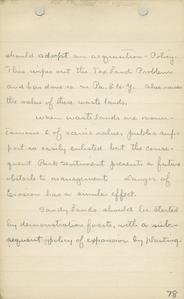 should adopt an acquisition - Policy.
This wipes out the Tax Land Problem
and has done so in Pa. & N.Y. Also raises
the value of these waste lands.
When waste lands are moun-
tainous & of scenic value, public sup-
port is easily enlisted but the conse-
quent Park Sentiment presents a future
obstacle to management. Danger of
Erosion has a similar effect.
Sandy Lands should be started
by demonstration forests, with a sub-
sequent policy of expansion by Planting.
78